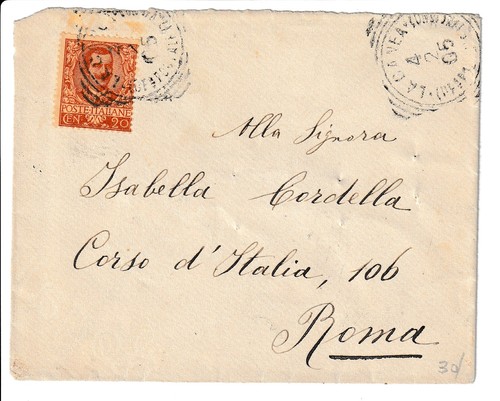 POSTE ITALIANE
CEN. 20
LA CANEA
4
2
05
Alla Signora
Isabella Cordella
Corso d'Italia, 106
Roma
30/